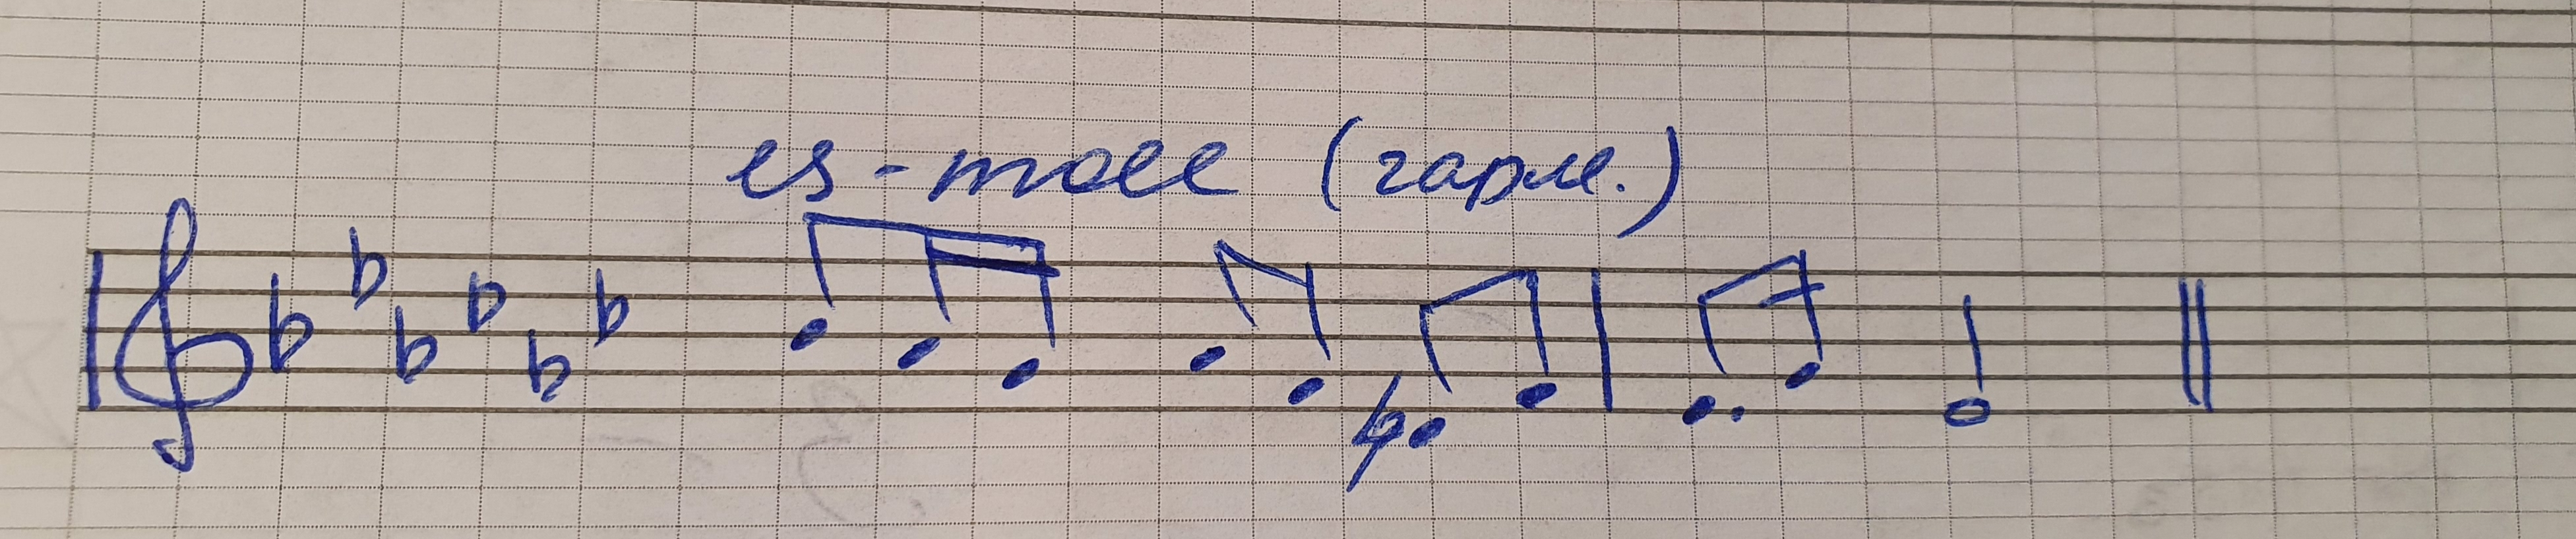 es-moll (гарм.)